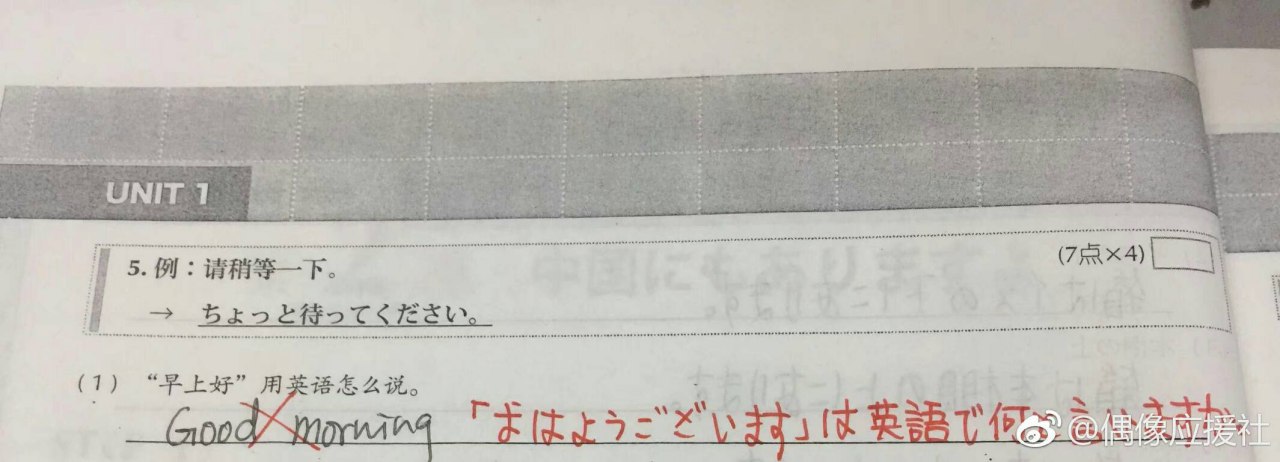 UNIT 1
5. 例：请稍等一下。
(7点×4)
→ ちょっと待ってください。
(1) “早上好”用英语怎么说。
Good morning 「おはようございます」は英語で何と言いますか
@偶像应援社